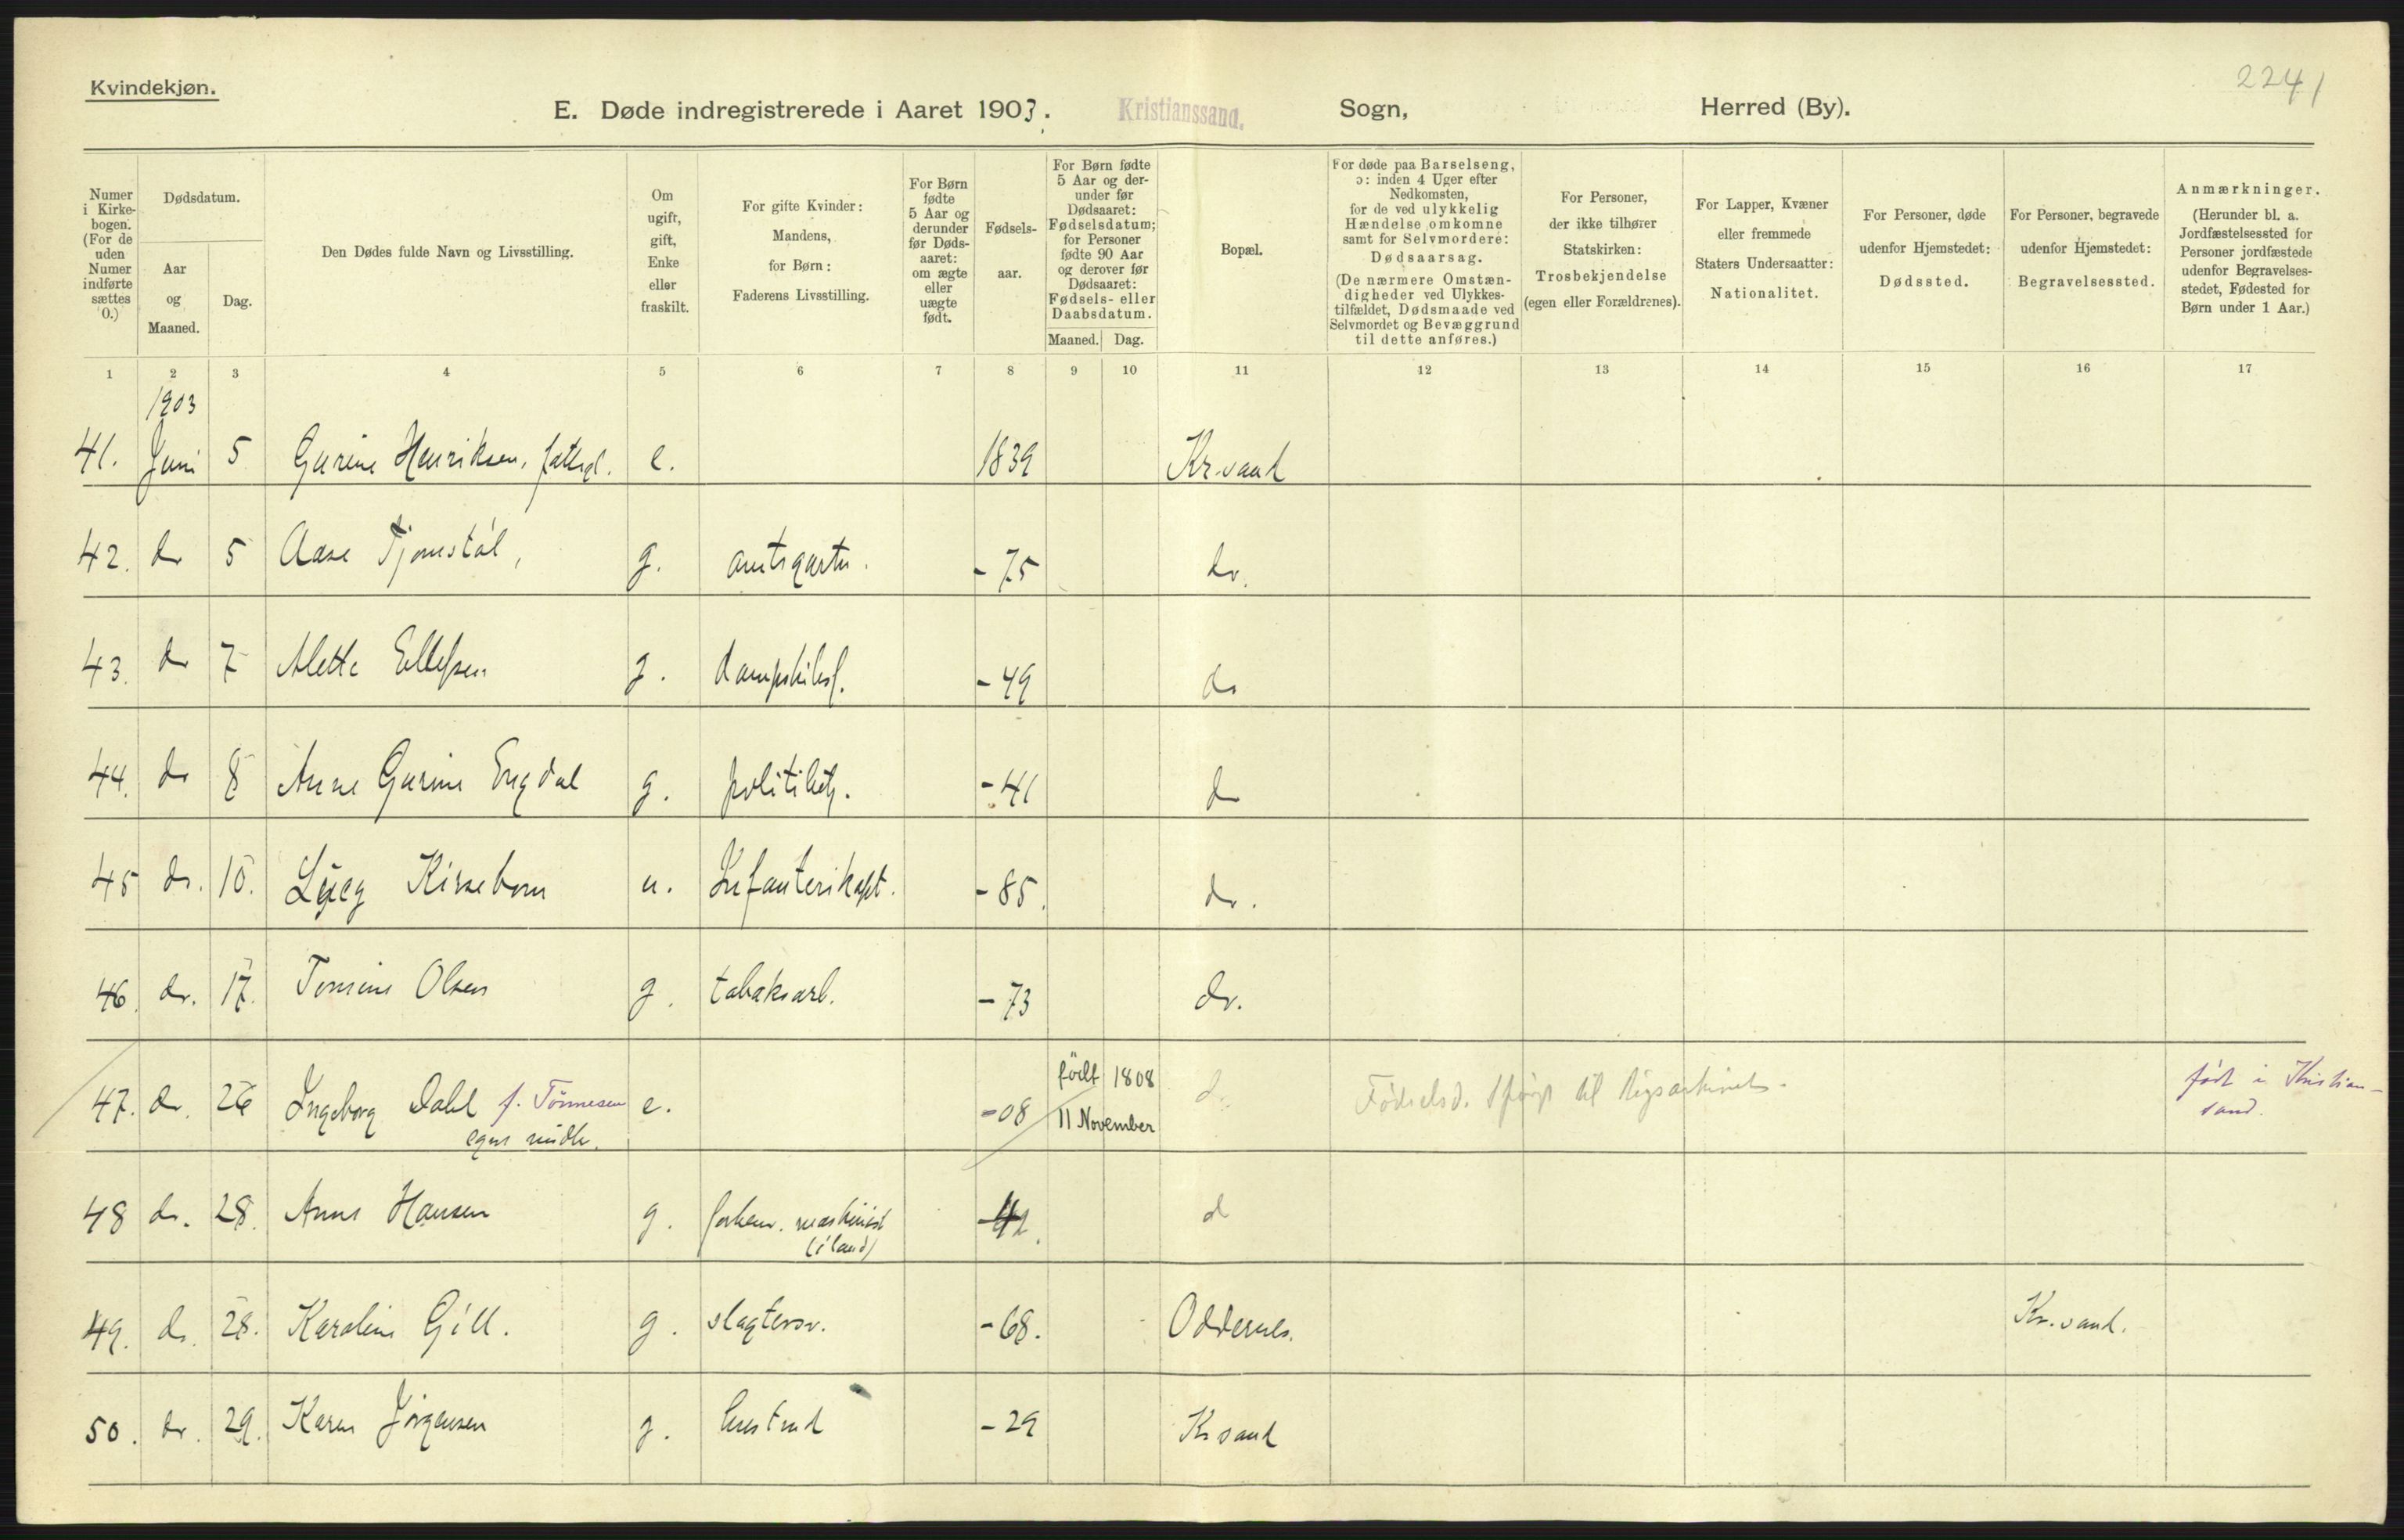 Kvindekjøn.
2241
E. Døde indregistrerede i Aaret 1903. Kristianssand. Sogn, Herred (By).
Numer i Kirke-bogen. (For de uden Numer indførte sættes 0.)
Dødsdatum.
Aar og Maaned.
Dag.
Den Dødes fulde Navn og Livsstilling.
Om ugift, gift, Enke eller fraskilt.
For gifte Kvinder: Mandens, for Børn: Faderens Livsstilling.
For Børn fødte 5 Aar og derunder før Døds-aaret: om ægte eller uægte født.
Fødsels-aar.
For Børn fødte 5 Aar og der-under før Dødsaaret: Fødselsdatum; for Personer fødte 90 Aar og derover før Dødsaaret: Fødsels- eller Daabsdatum.
Maaned. Dag.
Bopæl.
For døde paa Barselseng, ɔ: inden 4 Uger efter Nedkomsten, for de ved ulykkelig Hændelse omkomne samt for Selvmordere: Dødsaarsag. (De nærmere Omstæn-digheder ved Ulykkes-tilfældet, Dødsmaade ved Selvmordet og Bevæggrund til dette anføres.)
For Personer, der ikke tilhører Statskirken: Trosbekjendelse (egen eller Forældrenes).
For Lapper, Kvæner eller fremmede Staters Undersaatter: Nationalitet.
For Personer, døde udenfor Hjemstedet: Dødssted.
For Personer, begravede udenfor Hjemstedet: Begravelsessted.
Anmærkninger. (Herunder bl. a. Jordfæstelsessted for Personer jordfæstede udenfor Begravelses-stedet, Fødested for Børn under 1 Aar.)
1 2 3 4 5 6 7 8 9 10 11 12 13 14 15 16 17
1903
41. Juni 5 Gurine Henriksen, fattigl. e. 1839 Kr.sand
42. do 5 Aase Tjomstøl, g. amtsgartn. -75 do.
43. do 7 Alette Ellefsen g. dampskibsf. -49 do
44. do 8 Anne Gurine Engdal g. politibetj. -41 do
45 do. 10. Lÿcy Kisseborn u. Infanterikapt. -85. do.
46. do. 17. Tomine Olsen g. tabaksarb. -73 do.
47. do. 26 Ingeborg Dahl f. Tönnesen e. -08 født 1808 d. Fødselsd. spørgt til Rigsarkivet. født i Kristian-
egne midle. 11 November sand.
48 do. 28. Anne Hansen g. forhenv. maskinist d
(i land)
49. do. 28. Karoline Gill. g. slagtersv. -68. Oddernes. Kr.sand.
50. do. 29. Karen Jörgensen g. -29 Kr sand